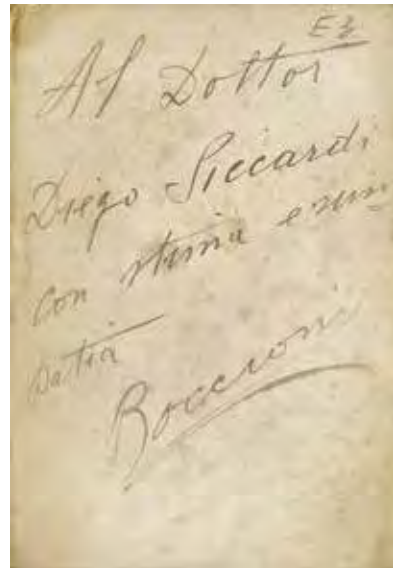 Al Dottor
Diego Siccardi
con stima e sim
patia
Boccioni